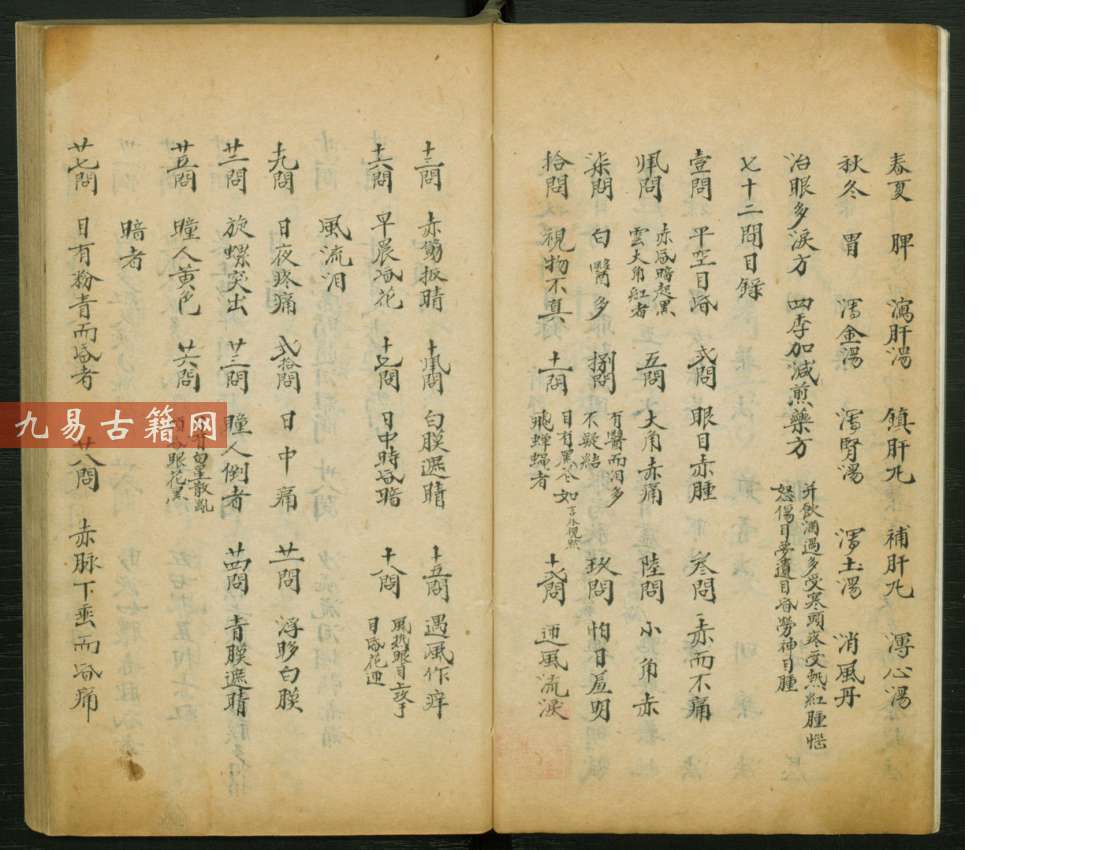 春夏 脾 瀉肝湯 鎮肝丸 補肝丸 瀉心湯
秋冬 胃 瀉金湯 瀉腎湯 瀉土湯 消風丹
治眼多淚方 四季加減煎藥方 并飲酒過多受寒頭疼受熱紅腫惱
怒傷目夢遺目昏勞神目腫
七十二問目錄
壹問 平空目昏 弍問 眼目赤腫 叁問 赤而不痛
肆問 赤昏暗起黑
雲大角紅者 五問 大角赤痛 陸問 小角赤
柒問 白醫多 捌問 有醫而泪多
不疑結 玖問 怕日羞明
拾問 視物不真 十一問 目有黑冬如
飛蟬蝇者 十二問 迎風流淚
十三問 赤筋扳睛 十四問 白膜遮睛 十五問 遇風作痒
十六問 早晨昏花 十七問 日中時昏暗 十八問 風熱眼目
目昏花迎
風流泪
十九問 日夜疼痛 弍拾問 日中痛 廿一問 浮眵白膜
廿二問 旋螺突出 廿三問 瞳人倒者 廿四問 青膜遮睛
廿五問 瞳人黄色 廿六問 白星散亂
昏眼花黑
暗者
廿七問 目有粉青而昏者 廿八問 赤脉下垂而昏痛
九易古籍网